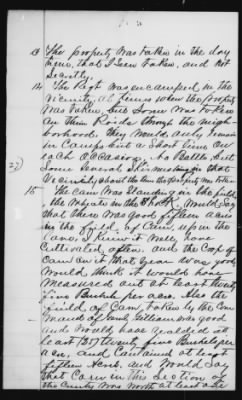 13 The property was taken in the day
time, that I seen taken, and not
secretly.
14 The Regt was encamped in the
vicinity at times when the property
was taken, but some was taken
on their Raids through the neigh-
borhood. They would only remain
in Camps but a short time on
each occasion. No Battle, but
some several skirmishes in that
vicinity about the time the property was taken
15 The Corn was standing in the field,
the wheat in the Shock, would say
that there was good fifteen acres
in the field, of Corn, upon the
land, I knew it well, have
cultivated often, and the Crop of
Corn on it that year was good
would think it would have
measured out at least twenty
five Bushels per acre. Also the
field of Corn taken by the Com
mand of was good
and would have yealded at
least (25) twenty five Bushels per
acre. and contained at least
fifteen Acres. and would say
that Corn in this section of
the County was worth at least one